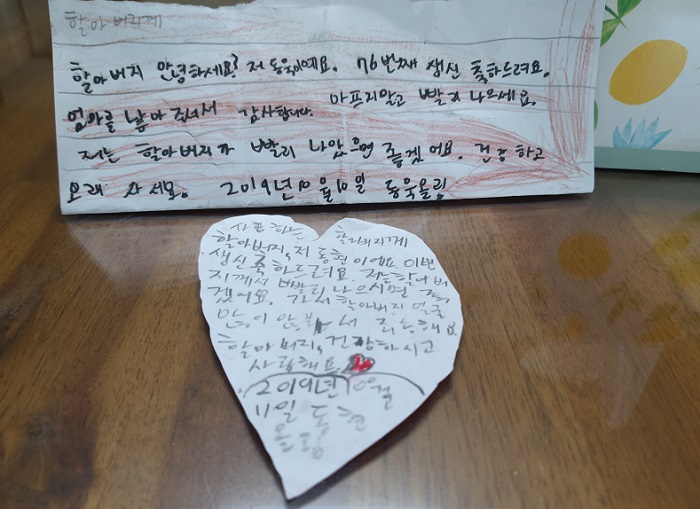 할아버지께
할아버지 안녕하세요? 저 동욱이예요. 76번째 생신 축하드려요.
엄마를 낳아 주셔서 감사합니다. 아프지말고 빨리 나으세요.
저는 할아버지가 빨리 나았으면 좋겠어요. 건강하고
오래 사세요. 2019년 10월 10일 동욱올림
사랑하는 할아버지께
할아버지, 저 동현이에요. 이번
생신 축하드려요 저는 할아버
지께서 빨리 나으시면 좋
겠어요. 할아버지 얼굴
많이 안 봐서 죄송해요.
할아버지, 건강하시고
사랑해요.
2019년 10월
11일 동현
올림